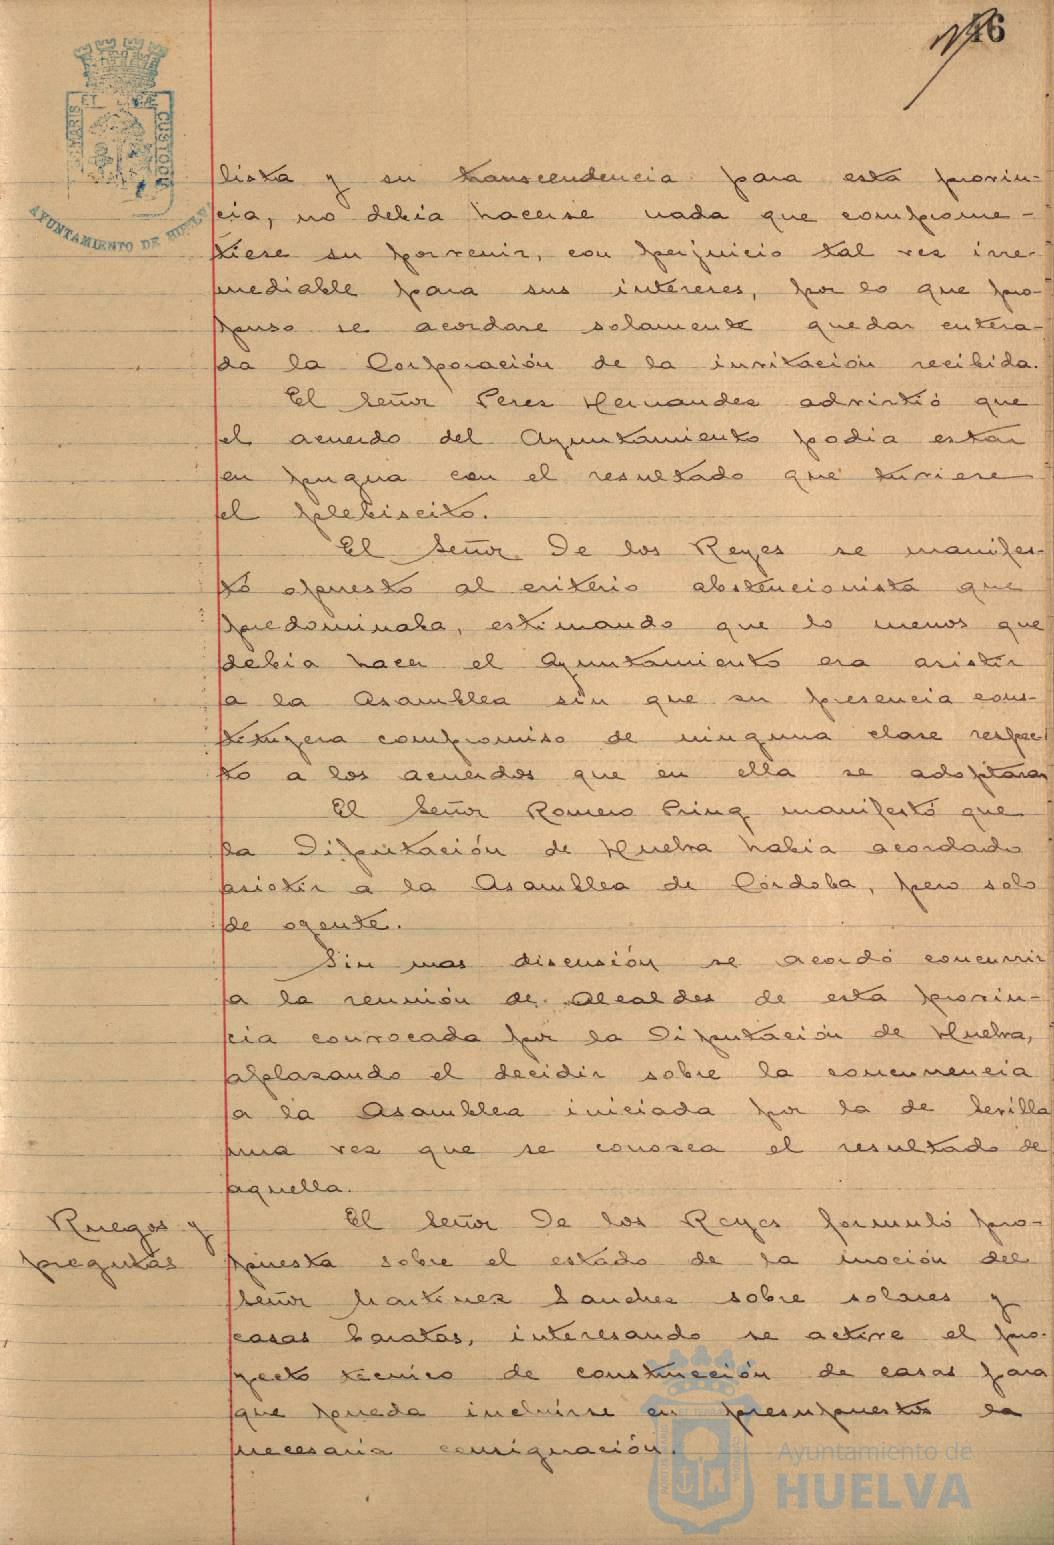 46
PORTUS MARIS ET TERRÆ CUSTODIA
AYUNTAMIENTO DE HUELVA
lista y su transcendencia para esta provin-
cia, no debia hacerse nada que comprome-
tiese su porvenir, con perjuicio tal vez irre-
mediable para sus intereses, por lo que pro-
puso se acordase solamente quedar entera-
da la Corporación de la invitación recibida.
El Señor Perez Hernandez advirtió que
el acuerdo del Ayuntamiento podia estar
en pugna con el resultado que tuviese
el plebiscito.
El Señor De los Reyes se manifes-
tó opuesto al criterio abstencionista que
predominaba, estimando que lo menos que
debia hacer el Ayuntamiento era asistir
a la Asamblea sin que su presencia cons-
tituyera compromiso de ninguna clase respec-
to a los acuerdos que en ella se adoptaran
El Señor Romero manifestó que
la Diputación de Huelva habia acordado
asistir a la Asamblea de Córdoba, pero solo
de oyente.
Sin mas discusión se acordó concurrir
a la reunión de Alcaldes de esta provin-
cia convocada por la Diputación de Huelva,
aplazando el decidir sobre la concurrencia
a la Asamblea iniciada por la de Sevilla
una vez que se conozca el resultado de
aquella.
Ruegos y
pregutas
El Señor De los Reyes formuló pro-
puesta sobre el estado de la moción del
Señor Martinez Sanchez sobre solares y
casas baratas, interesando se active el pro-
yecto técnico de construcción de casas para
que pueda incluirse en presupuestos la
necesaria consignación.
Ayuntamiento de
HUELVA